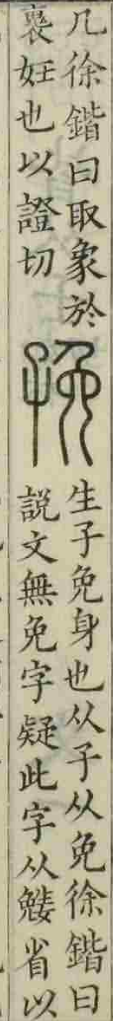 几徐鍇曰取象於
褢妊也以證切
㝃
生子免身也从子从免徐鍇曰
説文無免字疑此字从嬎省以